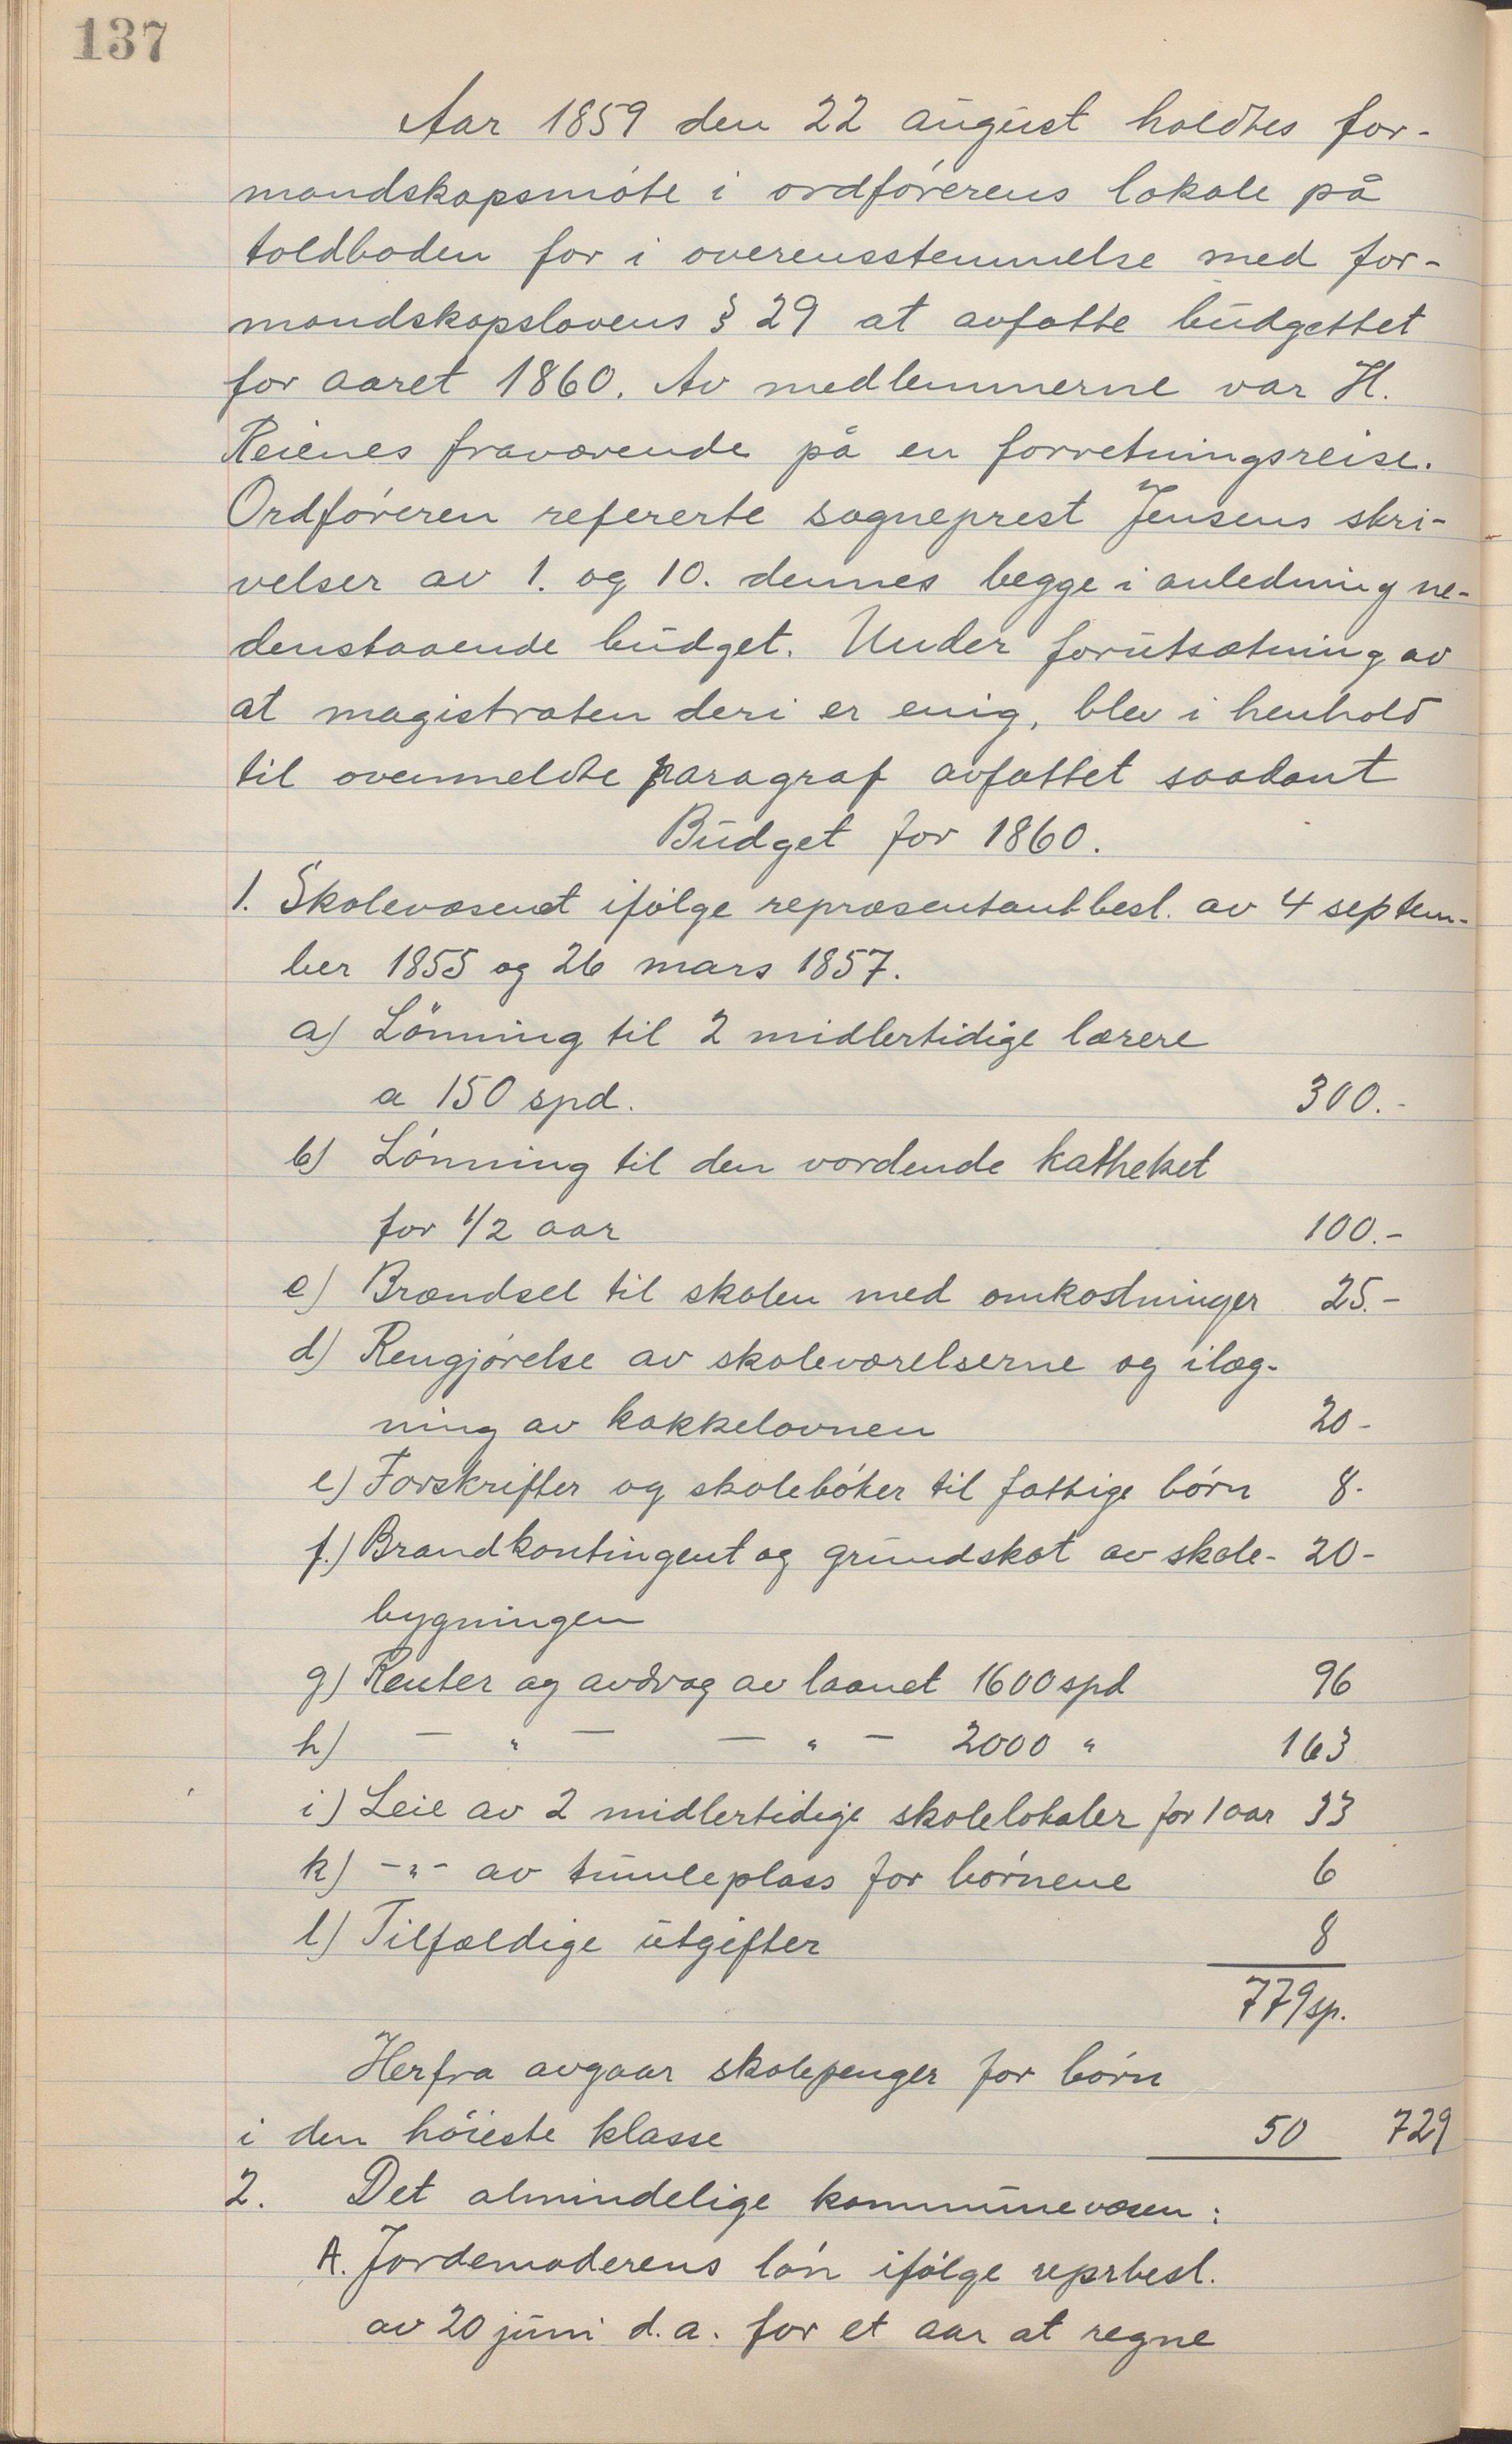 137
Aar 1859 den 22 august holdtes for-
mandskapsmøte i ordførerens lokale på
toldboden for i overensstemmelse med for-
mandskapslovens § 29 at avfatte budgettet
for aaret 1860. Av medlemmerne var H.
Reienes fraværende på en forretningsreise.
Ordføreren refererte sogneprest Jensens skri-
velser av 1. og 10. dennes begge i anledning ne-
denstaaende budget. Under forutsætning av
at magistraten deri er enig, blev i henhold
til ovenmeldte paragraf avfattet saadant
Budget for 1860.
1. Skolevæsenet ifølge repræsentantbesl. av 4 septem-
ber 1855 og 26 mars 1857.
a) Lönning til 2 midlertidige lærere
a 150 spd. 300.-
b) Lønning til den vordende katheket
for 1/2 aar 100.-
c) Brændsel til skolen med omkostninger 25.-
d) Rengjørelse av skoleværelserne og ilæg-
ning av kakkelovnen 20-
e) Forskrifter og skolebøker til fattige børn 8.
f.) Brandkontingent og grundskat av skole- 20-
bygningen
g) Renter og avdrag av laanet 1600 spd 96
h) — " — — " — 2000 " 163
i) Leie av 2 midlertidige skolelokaler for 1 aar 33
k) -"- av tumleplass for børnene 6
l) Tilfældige utgifter 8
779 sp.
Herfra avgaar skolepenger for børn
i den høieste klasse 50 729
2. Det almindelige kommunevæsen:
A. Jordemoderens løn ifølge reprbesl.
av 20 juni d.a. for et aar at regne